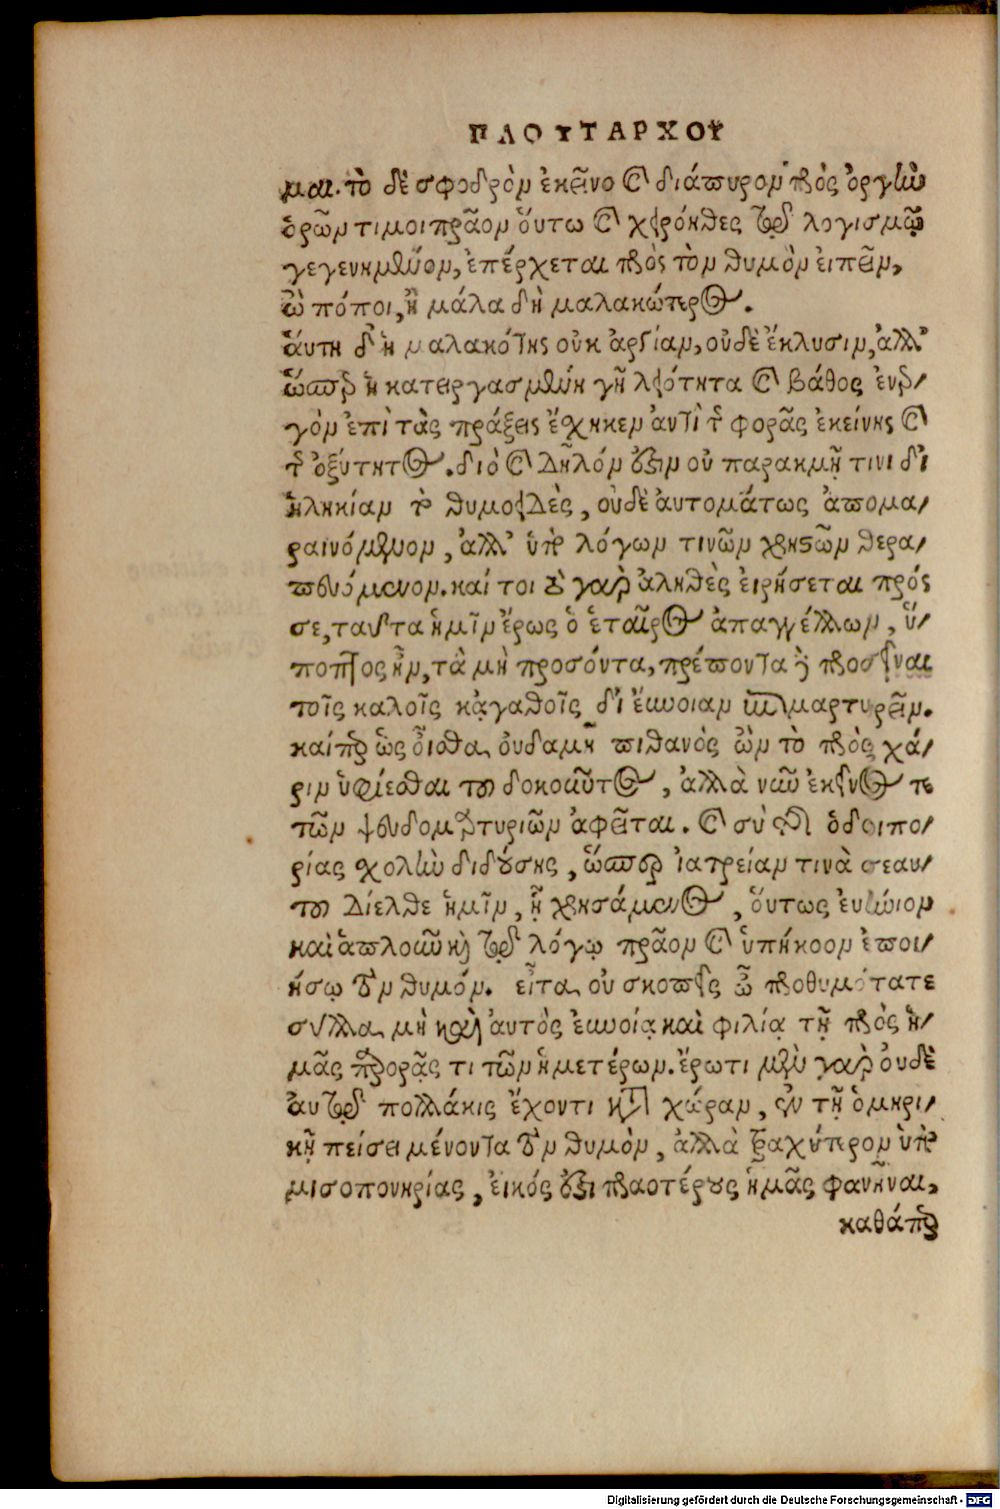 ΠΛΟΥΤΑΡΧΟΥ
μαι. τὸ δὲ σφοδρὸν ἐκεῖνο καὶ διάπυρον πρὸς ὀργὴν
ὁρῶν τι μοι πρᾶον ὅυτω καὶ χειρόηθες τῷ λογισμῷ
γεγενημένον, ἐπέρχεται πρὸς τὸν θυμὸν ἐιπεῖν,
ὢ πόποι, ἦ μάλα δὴ μαλακώτερος.
ἅυτη δ' ἡ μαλακότης οὐκ ἀργίαν, οὐδὲ ἔκλυσιν, ἀλλ'
ὥσπερ ἡ κατειργασμένη γῆ λειότητα καὶ βάθος ἐνερ/
γὸν ἐπὶ τὰς πράξεις ἔσχηκεν ἀντὶ τῆς φορᾶς ἐκείνης καὶ
τῆς ὀξύτητος. διὸ καὶ Δῆλόν ἐστιν οὐ παρακμῇ τινι δι'
ἡλικίαν τὸ θυμοειδὲς, οὐδὲ ἀυτομάτως ἀπομα/
ραινόμενον, ἀλλ' ὑπὸ λόγων τινῶν χρηστῶν θερα/
πευόμενον. καί τοι τὸ γὰρ ἀληθὲς ἐιρήσεται πρός
σε, ταῦτα ἡμῖν ἔρως ὁ ἑταῖρος ἀπαγγέλλων, ὕ/
ποπτος ἦν, τὰ μὴ προσόντα, πρέποντα δὲ προσεῖναι
τοῖς καλοῖς κἀγαθοῖς δι' ἔυνοιαν ἐπιμαρτυρεῖν.
καίπερ ὡς ὀῖσθα, ὀυδαμῆ πιθανὸς ὢν τὸ πρὸς χά/
ριν ὑφίεσθαι τοῦ δοκοῦντος, ἀλλὰ νῦν ἐκεῖνός τε
τῶν ψευδομαρτυριῶν ἀφεῖται. καὶ σὺ τῆς ὁδοιπο/
ρίας σχολὴν διδούσης, ὥσπερ ἰατρείαν τινὰ σεαυ/
τοῦ Δίελθε ἡμῖν, ᾗ χρησάμενος, ὅυτως ἐυήνιον
καὶ ἁπλοῦν καὶ τῷ λόγῳ πρᾶον καὶ ὑπήκοον ἐποι/
ήσω τὸν θυμόν. εἶτα οὐ σκοπεῖς ὦ προθυμότατε
σύλλα, μὴ καὶ αὐτὸς ἐυνοίᾳ καὶ φιλίᾳ τῇ πρὸς ἡ/
μᾶς παρορᾷς τι τῶν ἡμετέρων. ἔρωτι μὲν γὰρ ὀυδὲ
ἀυτῷ πολλάκις ἔχοντι κατὰ χώραν, ἐν τῇ ὁμηρι/
κῇ πείσει μένοντα τὸν θυμὸν, ἀλλὰ τραχύτερον ὑπὸ
μισοπονηρίας, ἐικός ἐστι πραοτέρους ἡμᾶς φανῆναι,
καθάπερ
Digitalisierung gefördert durch die Deutsche Forschungsgemeinschaft - DFG